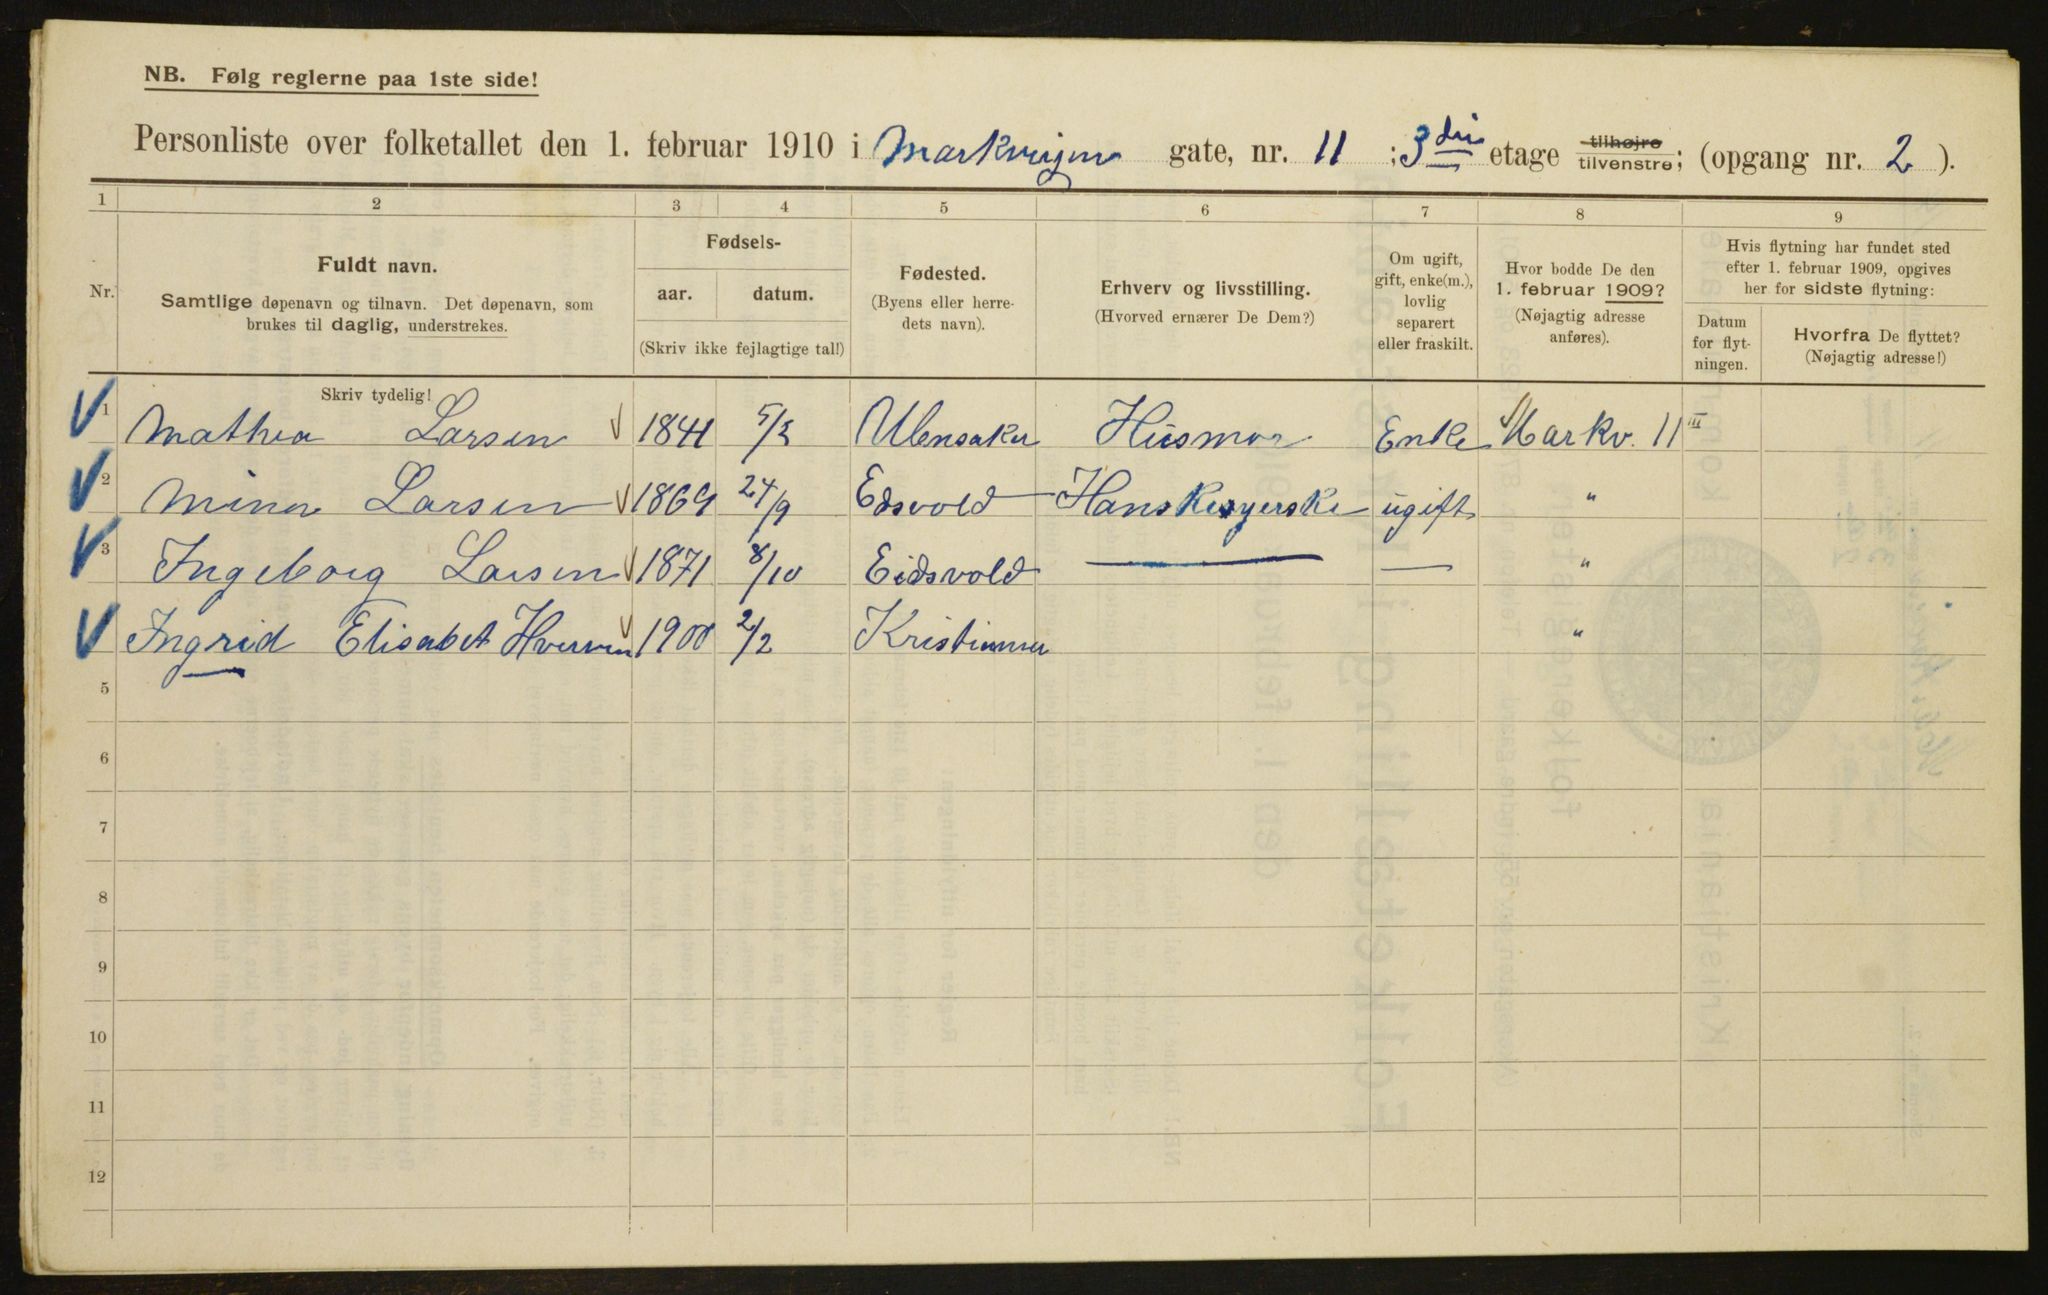 NB. Følg reglerne paa 1ste side!
Personliste over folketallet den 1. februar 1910 i Markveien gate, nr. 11 ; 3die etage tilhøjre tilvenstre; (opgang nr. 2 ).
1 2 3 4 5 6 7 8 9
Nr.
Fuldt navn.
Samtlige døpenavn og tilnavn. Det døpenavn, som
brukes til daglig, understrekes.
Fødsels-
aar. datum.
(Skriv ikke fejlagtige tal!)
Fødested.
(Byens eller herre-
dets navn).
Erhverv og livsstilling.
(Hvorved ernærer De Dem?)
Om ugift,
gift, enke(m.),
lovlig
separert
eller fraskilt.
Hvor bodde De den
1. februar 1909?
(Nøjagtig adresse
anføres).
Hvis flytning har fundet sted
efter 1. februar 1909, opgives
her for sidste flytning:
Datum
for flyt-
ningen.
Hvorfra De flyttet?
(Nøjagtig adresse!)
Skriv tydelig!
1 Mathea Larsen 1841 Ulensaker Husmor Enke Markv. 11 III
2 Mina Larsen 1869 24/9 Edsvold ugift "
3 Ingeborg Larsen 1871 8/10 Eidsvold — — "
Ingrid Elisabet 1900 2/2 Kristiania "
5
6
7
8
9
10
11
12